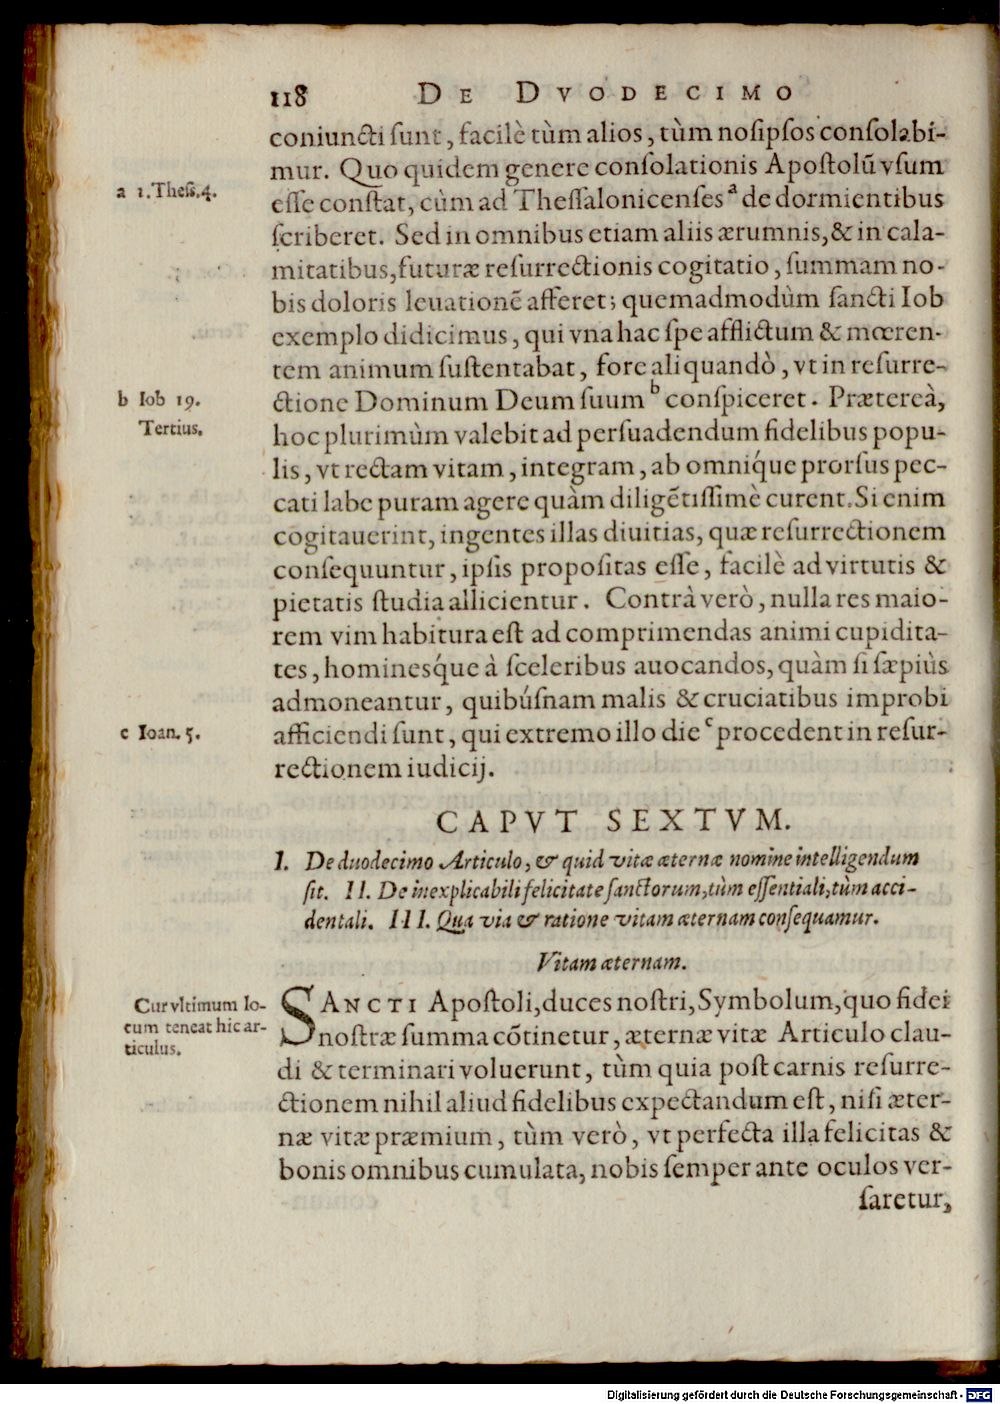 118 DE DVODECIMO
coniuncti ſunt, facilè tùm alios, tùm noſipſos conſolabi-
mur. Quo quidem genere conſolationis Apoſtolũ vſum
a 1. Theſſ. 4.
eſſe conſtat, cùm ad Theſſalonicenſes ᵃ de dormientibus
ſcriberet. Sed in omnibus etiam aliis ærumnis, & in cala-
mitatibus, futuræ reſurrectionis cogitatio, ſummam no-
bis doloris leuationẽ afferet; quemadmodùm ſancti Iob
exemplo didicimus, qui vna hac ſpe afflictum & mœren-
tem animum ſuſtentabat, fore aliquandò, vt in reſurre-
b Iob 19.
ctione Dominum Deum ſuum ᵇ conſpiceret. Prætereà,
Tertius.
hoc plurimùm valebit ad perſuadendum fidelibus popu-
lis, vt rectam vitam, integram, ab omniq́ue prorſus pec-
cati labe puram agere quàm diligẽtiſſimè curent. Si enim
cogitauerint, ingentes illas diuitias, quæ reſurrectionem
conſequuntur, ipſis propoſitas eſſe, facilè ad virtutis &
pietatis ſtudia allicientur. Contrà verò, nulla res maio-
rem vim habitura eſt ad comprimendas animi cupidita-
tes, hominesq́ue à ſceleribus auocandos, quàm ſi ſæpiùs
admoneantur, quibúſnam malis & cruciatibus improbi
c Ioan. 5.
afficiendi ſunt, qui extremo illo die ᶜ procedent in reſur-
rectionem iudicij.
CAPVT SEXTVM.
I. De duodecimo Articulo, & quid vitæ æternæ nomine intelligendum
ſit. II. De inexplicabili felicitate ſanctorum, tùm eſſentiali, tùm acci-
dentali. III. Qua via & ratione vitam æternam conſequamur.
Vitam æternam.
Cur vltimum lo-
cum teneat hic ar-
ticulus.
SANCTI Apoſtoli, duces noſtri, Symbolum, quo fidei
noſtræ ſumma cõtinetur, æternæ vitæ Articulo clau-
di & terminari voluerunt, tùm quia poſt carnis reſurre-
ctionem nihil aliud fidelibus expectandum eſt, niſi æter-
næ vitæ præmium, tùm verò, vt perfecta illa felicitas &
bonis omnibus cumulata, nobis ſemper ante oculos ver-
ſaretur,
Digitalisierung gefördert durch die Deutsche Forschungsgemeinschaft - DFG